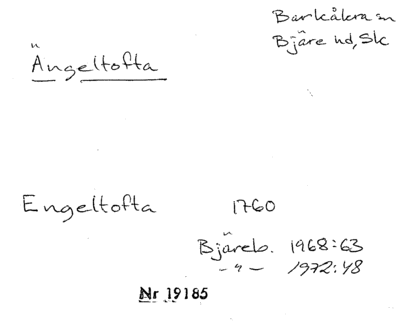 Barkåkra sn
Bjäre hd, Sk
Ängeltofta
Engeltofta 1760
Bjäreb. 1968:63
-"- 1972:48
Nr 19185